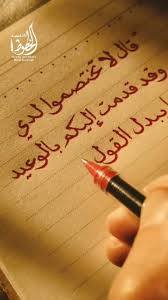 قال لا تختصموا لدي
وقد قدمت إليكم بالوعيد
يبدل القول